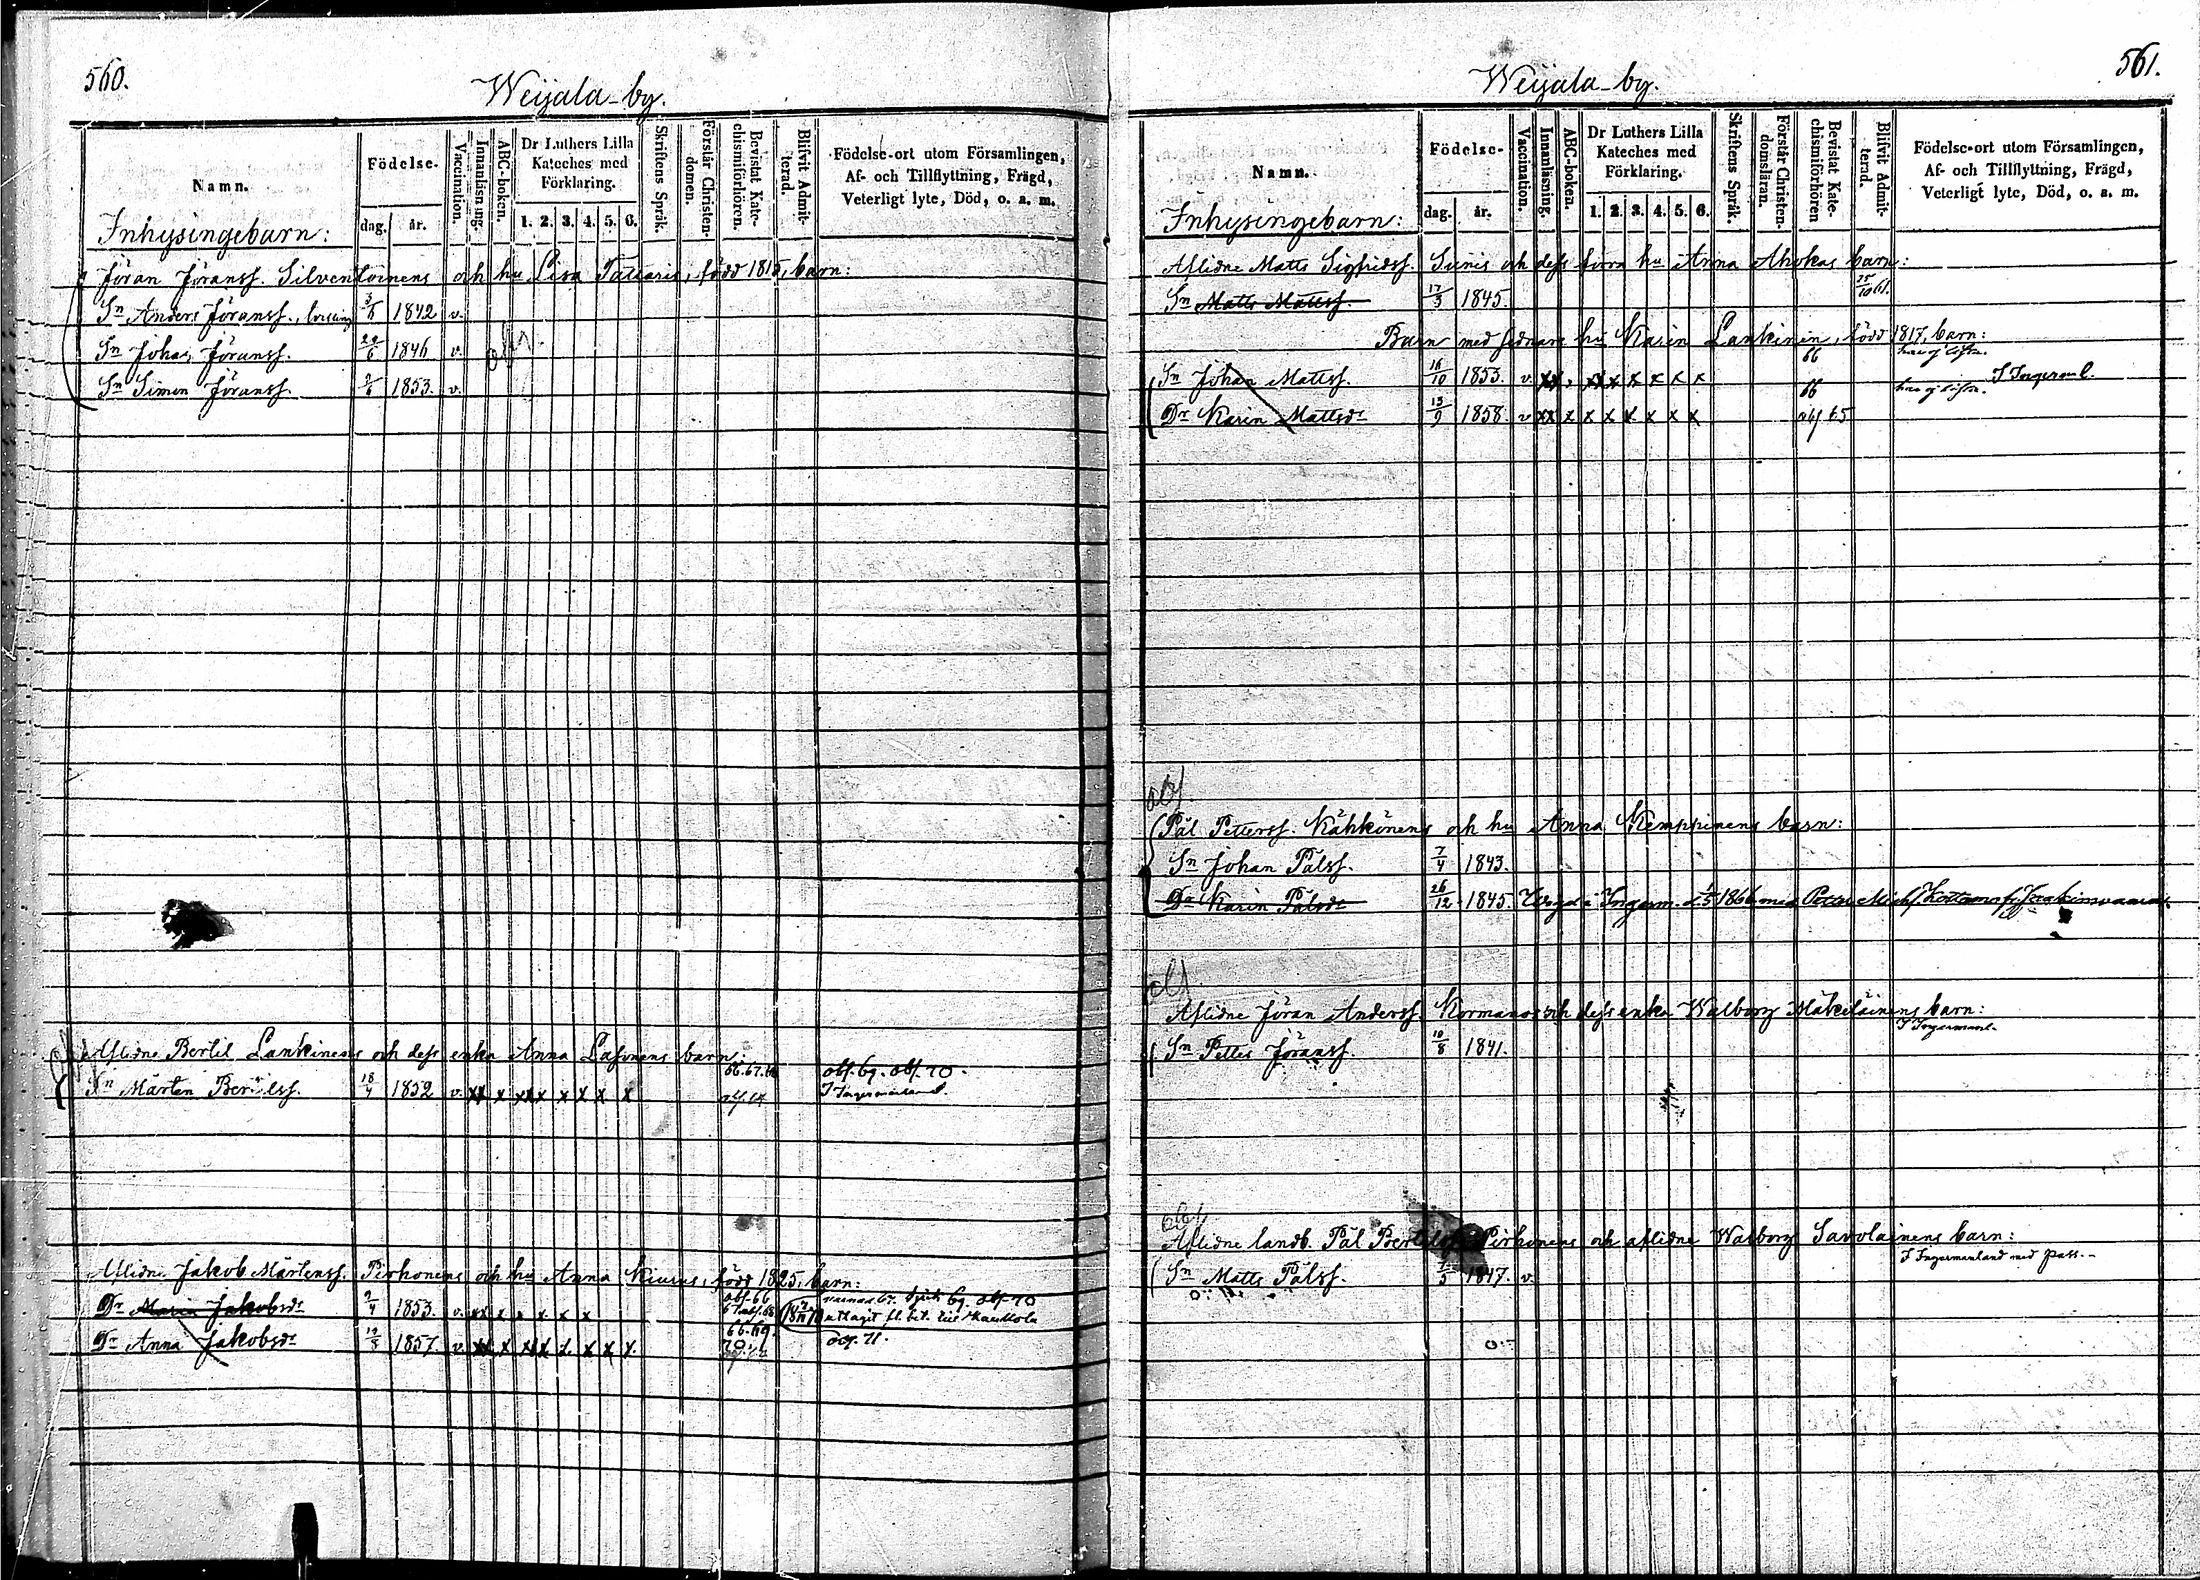 560.
Weijala by.
Namn.
Födelse-
dag. år.
Vaccination.
Innanläsning.
ABC-boken.
Dr Luthers Lilla Kateches med Förklaring.
1. 2. 3. 4. 5. 6.
Skriftens Språk.
Förstår Christendomen.
Bevistat Katechismiförhören.
Blifvit Admitterad.
Födelse-ort utom Församlingen,
Af- och Tillflyttning, Frägd,
Veterligt lyte, Död, o. a. m.
Inhysingebarn:
Jöran Jöranss. Silventoinens och hu Lisa Tattaris, född 1815, barn:
Sn Anders Jöranss. 3/6 1842 v.
Sn Johan Jöranss. 29/6 1846 v.
Sn Simon Jöranss. 9/6 1853. v.
Aflidne Bertil Lankinens och dess enka Anna Lasonens barn:
Sn Mårten Bertilss. 18/4 1852 v. xx x xx x x x x x 66.67. obs. 69. obs. 70.
I Ingermanland.
Aflidne Jakob Mårtenss. Pirhonens och hu Anna Kiurus, född 1825, barn:
Dr Maria Jakobsdr 2/4 1853. v. xx x x x x x obs. 66 69. obs 70
uttagit fl. bet. till
Dr Anna Jakobsdr 19/8 1857. v. xx x xx x x x x 66. 69. 70. obs. 71.
561.
Weijala by.
Namn.
Födelse-
dag. år.
Vaccination.
Innanläsning.
ABC-boken.
Dr Luthers Lilla Kateches med Förklaring.
1. 2. 3. 4. 5. 6.
Skriftens Språk.
Förstår Christendomsläran.
Bevistat Katechismiförhören
Blifvit Admitterad.
Födelse-ort utom Församlingen,
Af- och Tillflyttning, Frägd,
Veterligt lyte, Död, o. a. m.
Inhysingebarn:
Aflidne Matts Sigfridss. Sunis och dess förra hu Anna Ahokas barn:
Sn Matts Mattss. 17/3 1845. 25/10 61.
Barn med sednare hu Karin Lankinen, född 1817, barn:
Sn Johan Mattss. 16/10 1853. v. xx x xx x x x x x 66
I Ingermanl.
Dr Karin Mattsdr 13/9 1858. v xx x x x x x x x 66 obs 65
obs
Pål Petterss. Kähkönens och hu Anna Kemppinens barn:
Sn Johan Pålss. 7/4 1843.
Dr Karin Pålsdr 26/12 1845. Wigd i Ingerm. d. 1/5 1866 med Petter Michelss.
obs
Aflidne Jöran Anderss. Kormanos och dess enka Walborg Mäkeläinens barn:
Sn Petter Jöranss. 10/8 1841. I Ingermanl.
obs
Aflidne landb. Pål Bertilss. Pirhonens och aflidne Walborg Savolainens barn:
Sn Matts Pålss. 1/5 1847. v. I Ingermanland med pass.